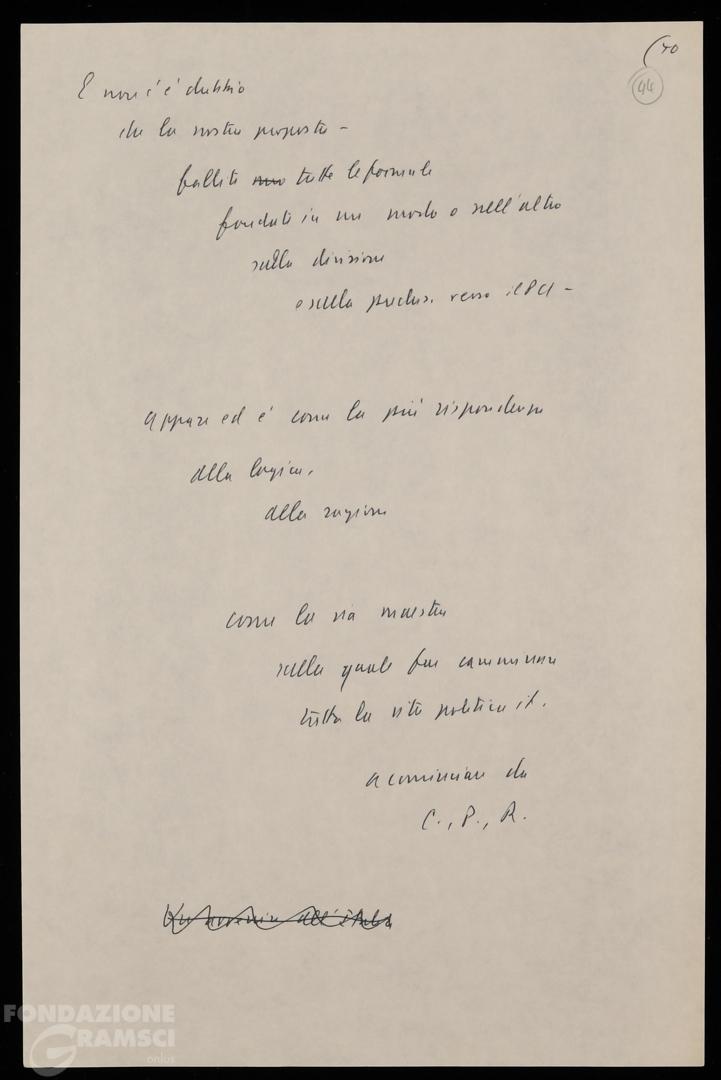 (40
44
E non c'è dubbio
che la nostra proposta –
fallite tutte le formule
fondate in un modo o nell'altro
sulla divisione
e sulla preclus. verso il PCI –
appare ed è come la più rispondente
alla logica,
alla ragione
come la via maestra
sulla quale far camminare
tutta la vita politica it.
a cominciare da
C., P., R.
FONDAZIONE
GRAMSCI
onlus